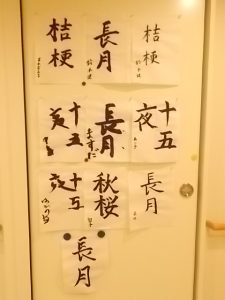 桔梗
長月
桔梗
十五夜
長月
十五夜
十五夜
秋桜
長月
長月